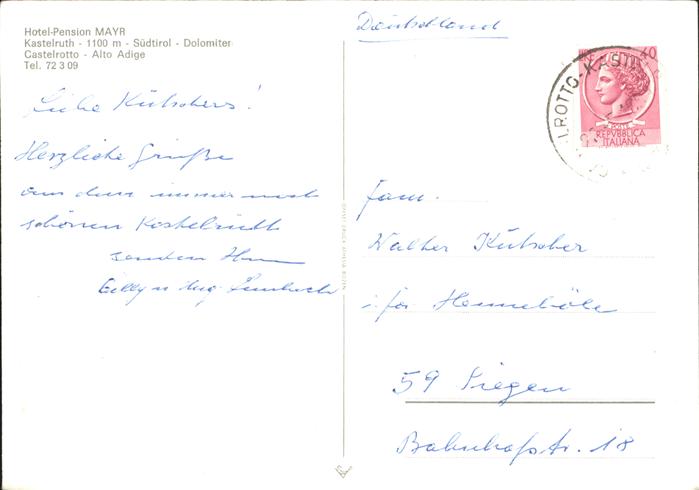 Hotel-Pension MAYR
Kastelruth - 1100 m - Südtirol - Dolomiten
Castelrotto - Alto Adige
Tel. 72 3 09
Liebe Kütschers!
Herzliche Grüße
aus dem immer noch
schönen Kastelruth
senden Ihnen
Cilly u. Aug.
Deutschland
40
LROTTO-KAST
POSTE
REPVBBLICA
ITALIANA
Fam.
Walter Kütscher
i/fa Henneböle
59 Siegen
Bahnhofstr. 18